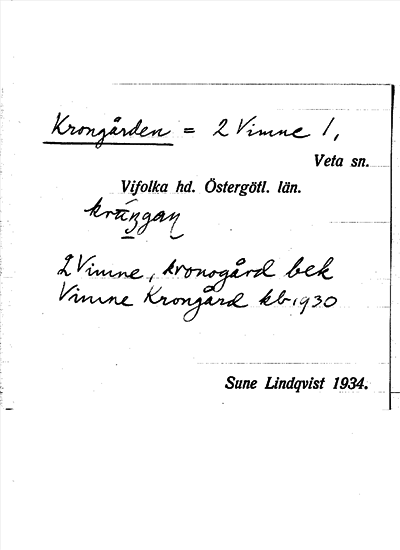 Krongården = 2 Vimne /,
Veta sn.
Vifolka hd. Östergötl. län.
2 Vimne, kronogård bek
Vimne Krongård kb. 1930
Sune Lindqvist 1934.